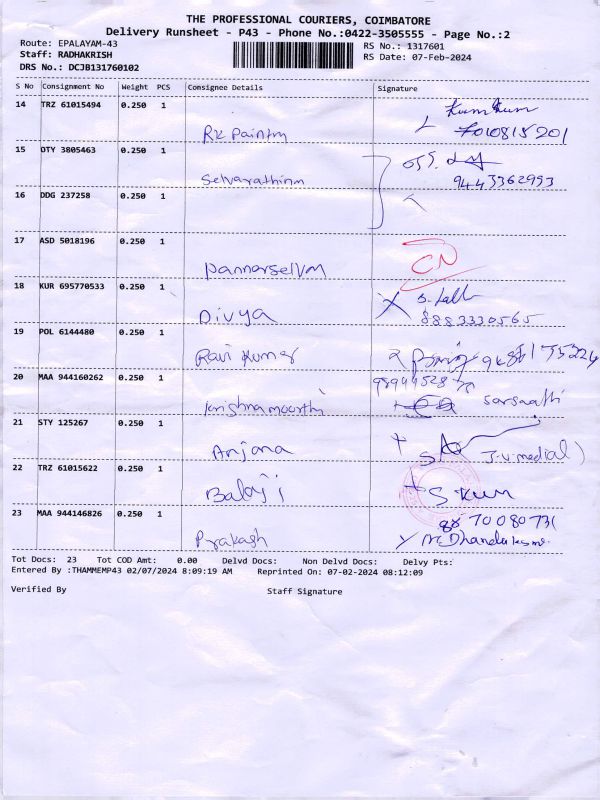 THE PROFESSIONAL COURIERS, COIMBATORE
Delivery Runsheet - P43 - Phone No.:0422-3505555 - Page No.:2
Route: EPALAYAM-43
RS No.: 1317601
Staff: RADHAKRISH
RS Date: 07-Feb-2024
DRS No.: DCJB131760102
S No Consignment No Weight PCS Consignee Details Signature
14 TRZ 61015494 0.250 1
Kumkum
RK Painting
7010815201
15 DTY 3805463 0.250 1
Selvarathinam
9443362953
16 DDG 237258 0.250 1
17 ASD 5018196 0.250 1
CN
Pannerselvm
18 KUR 695770533 0.250 1
Divya
8883330565
19 POL 6144480 0.250 1
Ravi Kumar
20 MAA 944160262 0.250 1
Krishnamoorthi
21 STY 125267 0.250 1
Anjana
J.V. medial)
22 TRZ 61015622 0.250 1
Balaji
S. Kum
23 MAA 944146826 0.250 1
Prakash
Tot Docs: 23 Tot COD Amt: 0.00 Delvd Docs: Non Delvd Docs: Delvy Pts:
Entered By :THAMMEMP43 02/07/2024 8:09:19 AM Reprinted On: 07-02-2024 08:12:09
Verified By Staff Signature